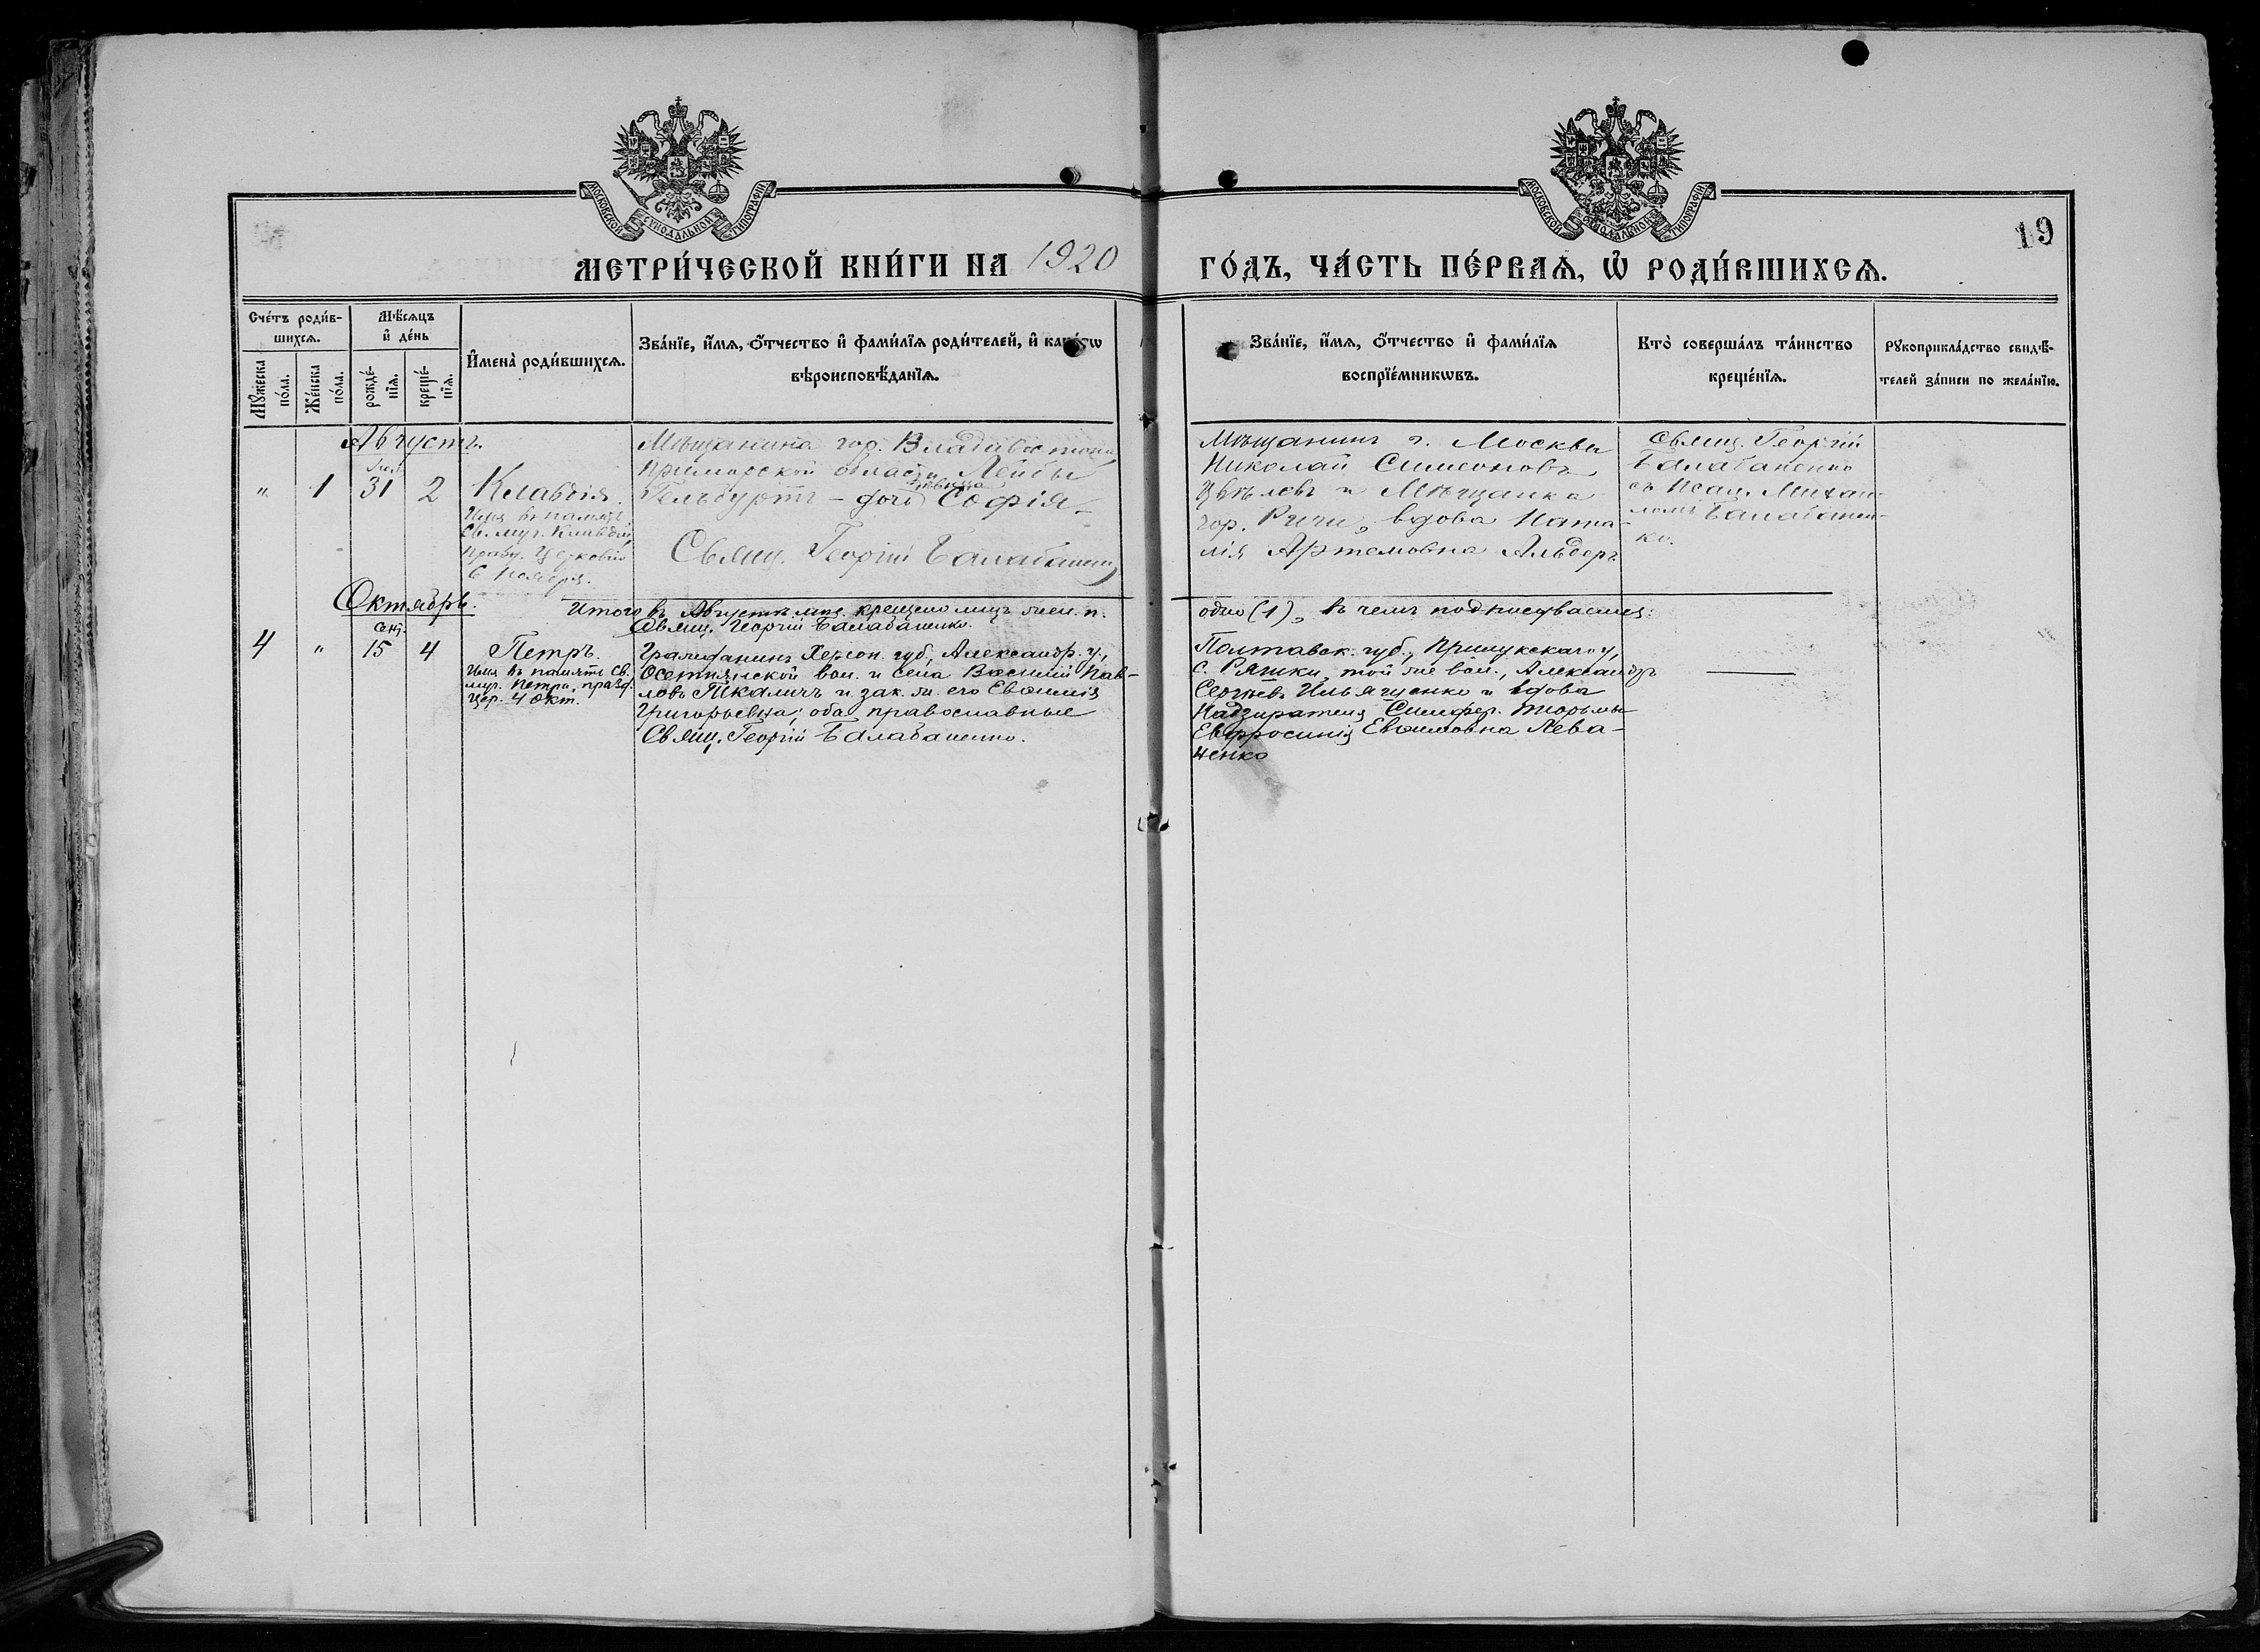 МОСКОВСКОЙ СѴНОДАЛЬНОЙ ТИПОГРАФІИ
МОСКОВСКОЙ СѴНОДАЛЬНОЙ ТИПОГРАФІИ
19
МЕТРИ́ЧЕСКОЙ КНИ́ГИ НА 1920
ГО́ДЪ, ЧА́СТЬ ПЕ́РВАѦ, Ѡ҆ РОДИ́ВШИХСѦ.
Сче́тъ роди́в-
шихсѧ.
Мꙋ́жеска
по́ла.
Же́нска
по́ла.
Мѣ́сѧцъ
и҆ де́нь
рожде́-
нїѧ.
креще́-
нїѧ.
И҆мена̀ роди́вшихсѧ.
Зва́нїе, и҆́мѧ, ѻ҆́тчество и҆ фами́лїѧ роди́телей, и҆
вѣроисповѣ́данїѧ.
Зва́нїе, и҆́мѧ, ѻ҆́тчество и҆ фами́лїѧ
воспрїе́мникѡвъ.
Кто̀ соверша́лъ та́инство
креще́нїѧ.
Рꙋкоприкла́дство свидѣ́-
телей за́писи по жела́нїю.
Августъ.
" 1 31 2
Клавдія.
Имя въ память
Св. муч. Клавдіи,
празд. Церковію
6 Ноября.
Мѣщанина гор. Владивостока
Приморской области Лейбы
Гельбуртъ - дочь девица София
Свящ. Георгій Балабаненко
Мѣщанинъ г. Москвы
Николай Симеоновъ
Цвѣловъ и Мѣщанка
гор. Риги, вдова Ната-
лія Артемовна Альберъ
Свящ. Георгій
Балабаненко
съ Псал. Михаи-
ломъ Балабанен-
ко.
Итого въ Августѣ мѣс. крещено лицъ жен. п.
одно (1), въ чемъ подписываемся:
Свящ. Георгій Балабаненко.
Октябрь.
Сент.
4 " 15 4
Петръ.
Имя въ память Св.
муч. Петра, празд.
Цер. 4 Окт.
Гражданинъ Херсон. губ., Александр. у.,
вол. и села Василий Пав-
ловъ Ткаличъ и зак. ж. его Евѳимія
Григорьевна; оба православные
Свящ. Георгій Балабаненко.
Полтавск. губ., Прилукскаго у,
с. Ряшки, той же вол., Александръ
Сергѣевъ Ильяшенко и вдова
Надзирателя Симфер. тюрьмы
Евфросинія Евѳимовна Лева-
ченко